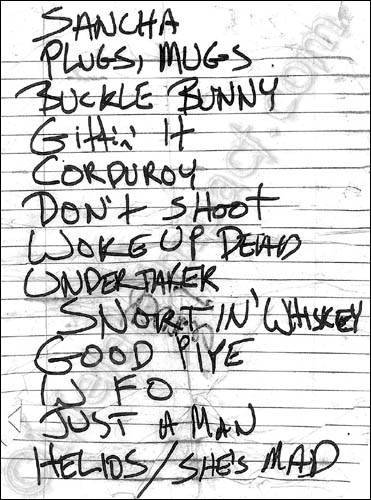 SANCHA
PLUGS, MUGS
BUCKLE BUNNY
Gittin' It
CORDUROY
DON't SHOOt
WOKE UP DEAD
UNDERTAKER
SNORTIN' WHISKEY
GOOD
W F O
JUST A MAN
HELIOS/SHE'S MAD